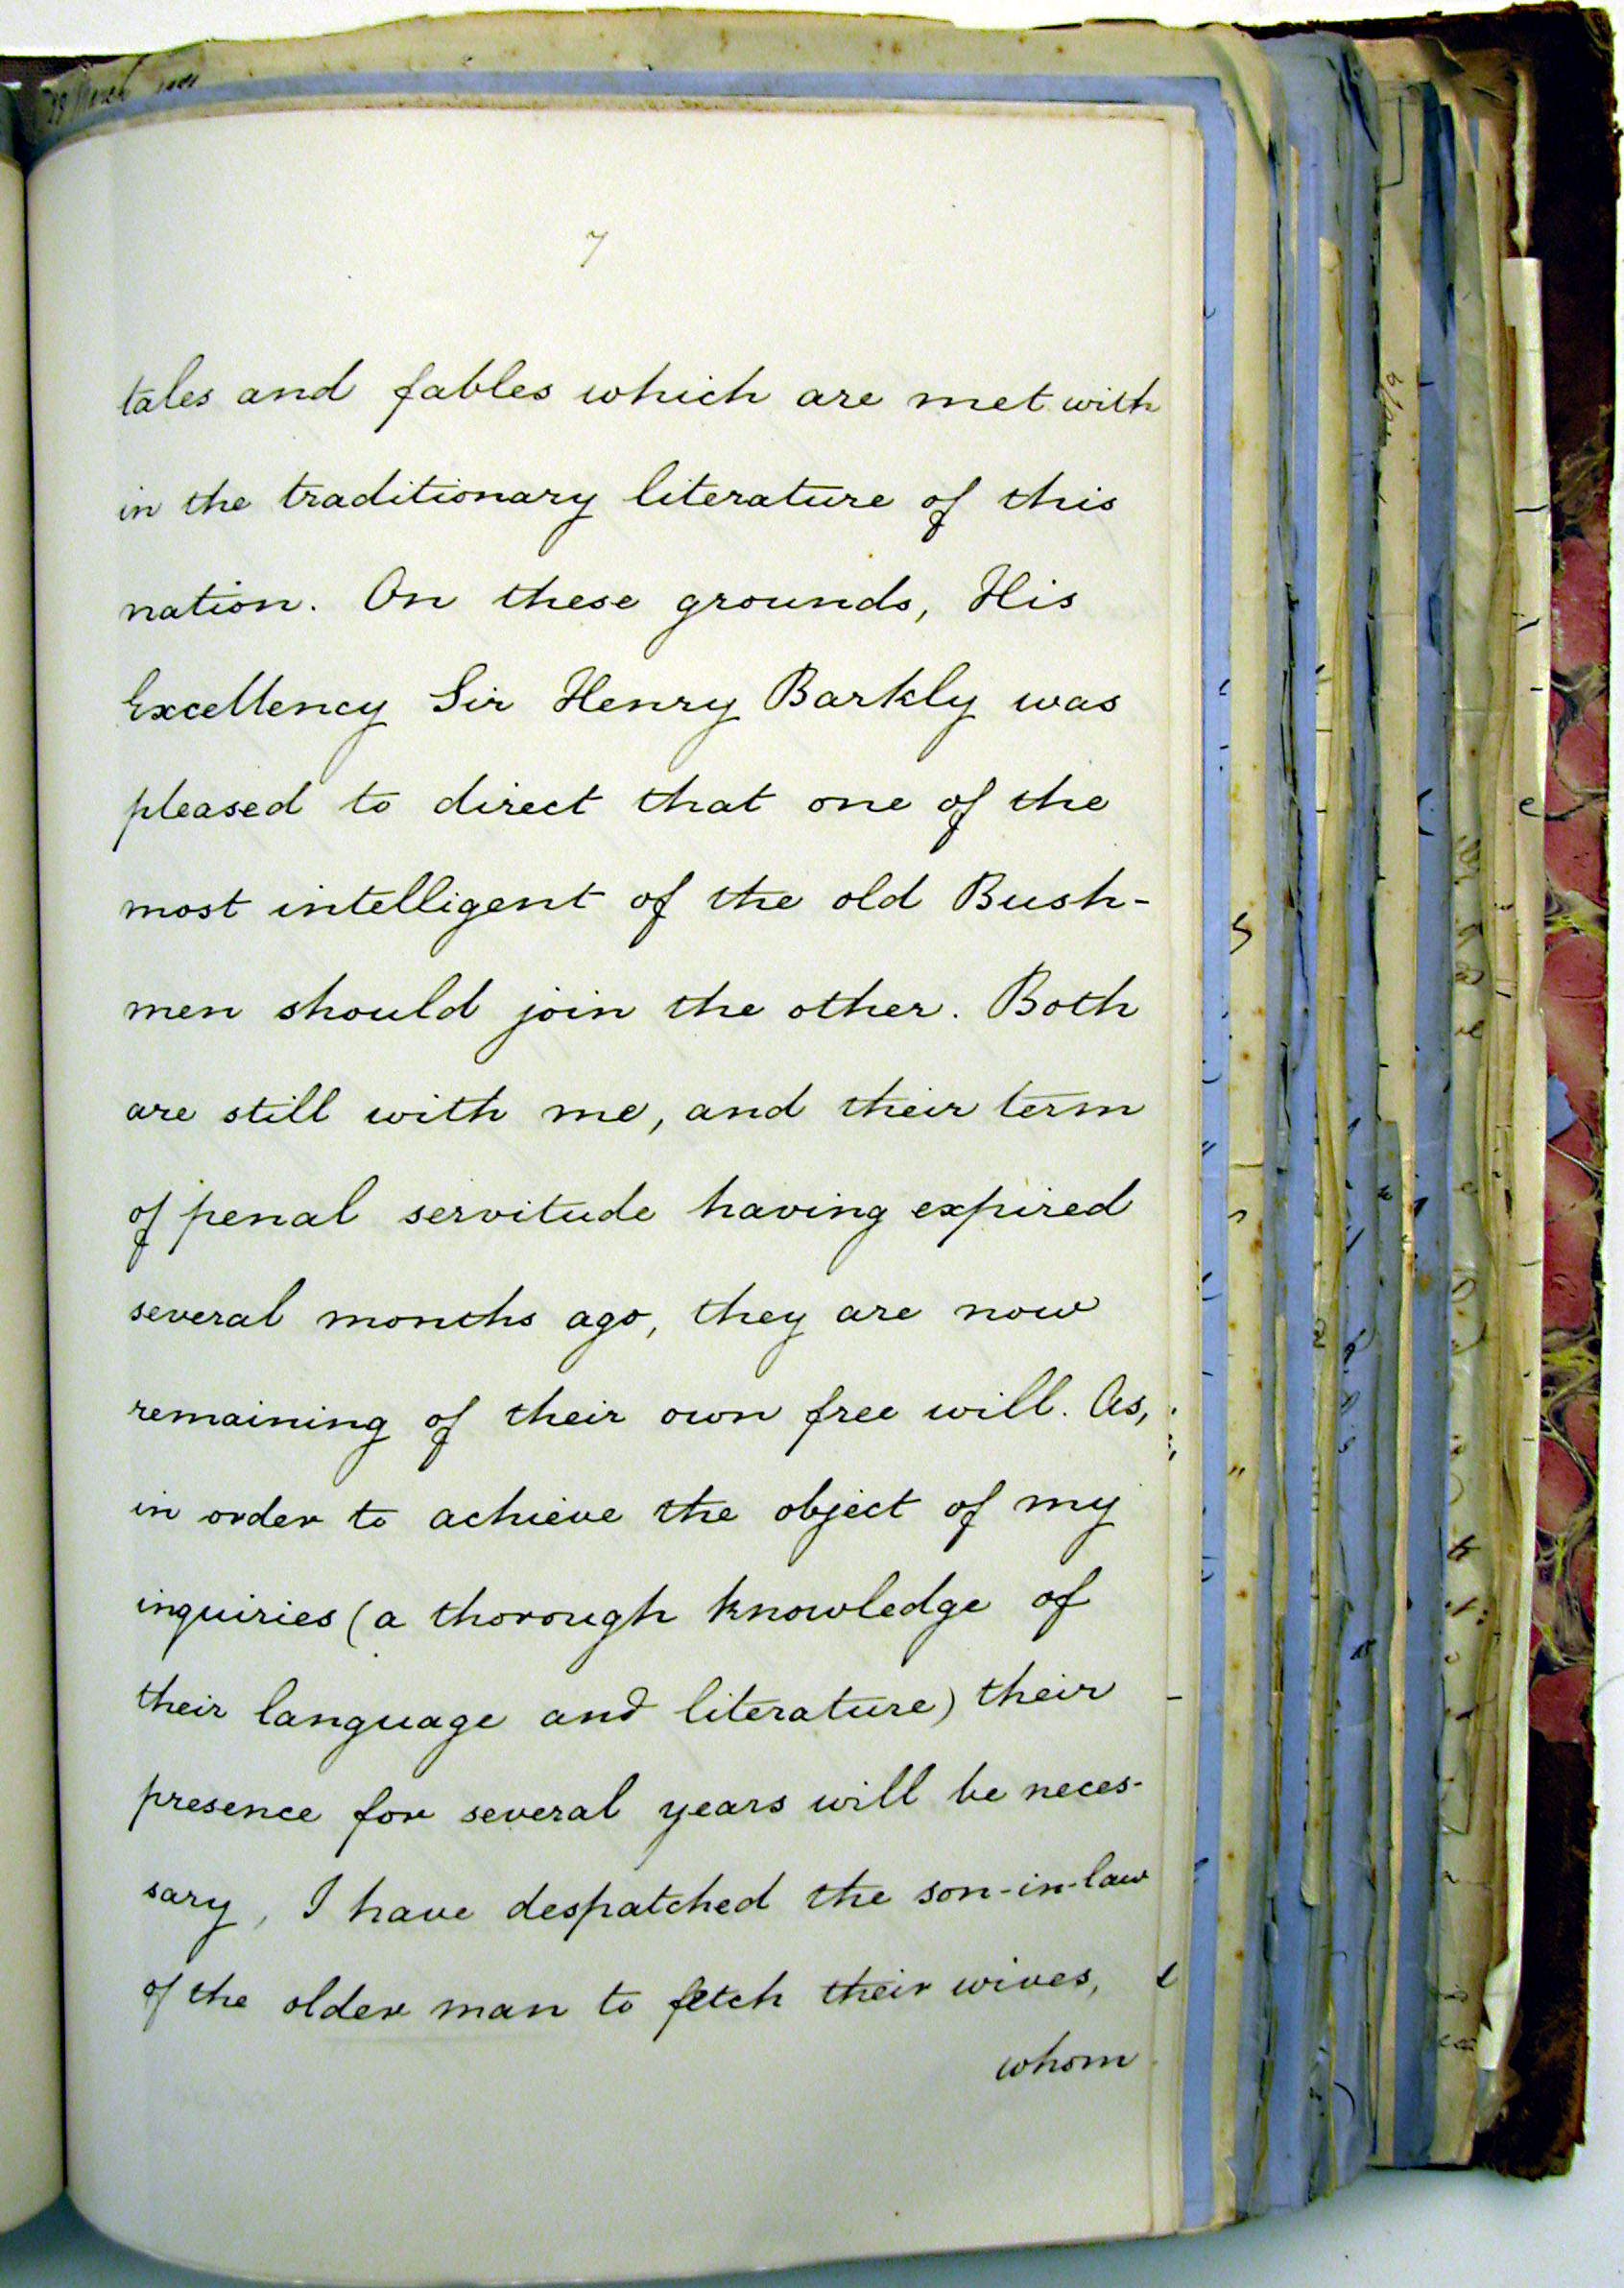 29 March
7
tales and fables which are met with
in the traditionary literature of this
nation. On these grounds, His
Excellency Sir Henry Barkly was
pleased to direct that one of the
most intelligent of the old Bush-
men should join the other. Both
are still with me, and their term
of penal servitude having expired
several months ago, they are now
remaining of their own free will. As,
in order to achieve the object of my
inquiries (a thorough knowledge of
their language and literature) their
presence for several years will be neces-
sary, I have despatched the son-in-law
of the older man to fetch their wives,
whom